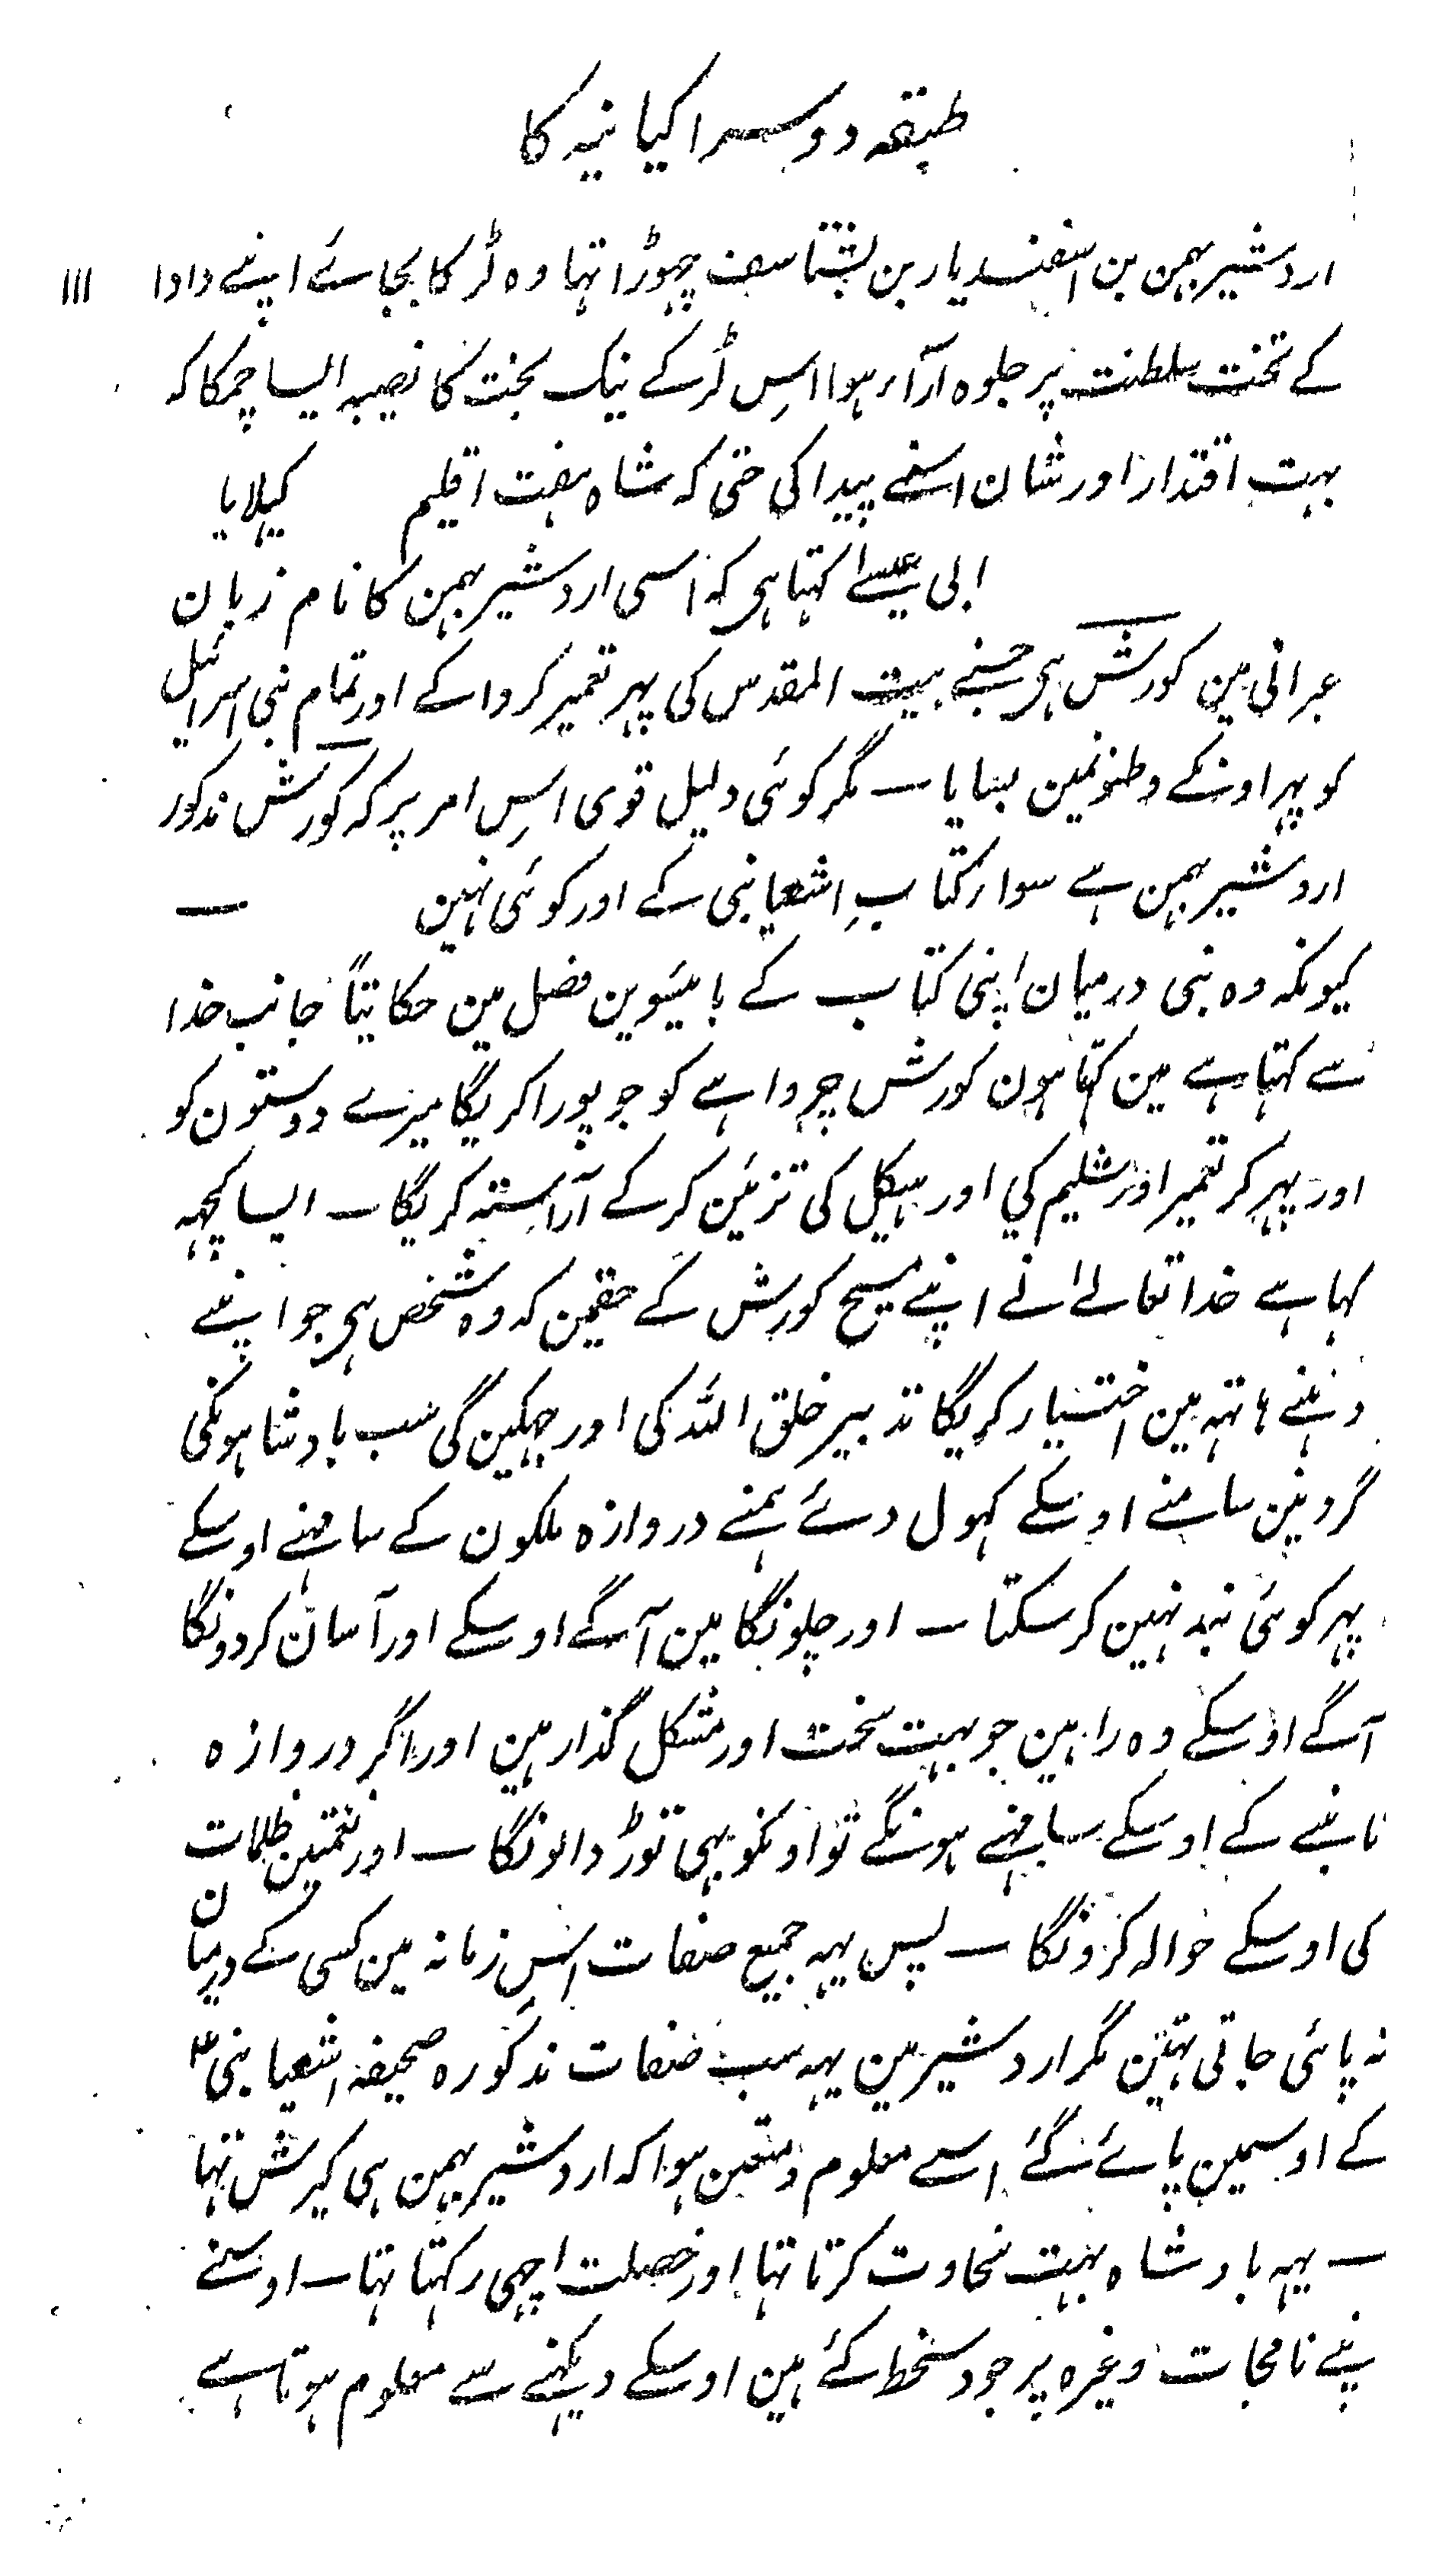 طبقہ دوسرا کیانیہ کا
اردشیر بہمن بن اسفندیار بن بشتاسف چہوڑا تہا وہ لڑکا بجائے اپنے دادا ۱۱۱
کے تخت سلطنت پر جلوہ آراء ہوا اس لڑکے نیک بخت کا نصیبہ ایسا چمکا کہ
بہت اقتدار اور شان اسنے پیدا کی حتی کہ شاہ ہفت اقلیم کہلایا
ابی عیسےٰ کہتا ہی کہ اسی اردشیر بہمن کا نام زبان
عبرانی مین کورش ہی جسنے بیت المقدس کی پہر تعمیر کروا کے اور تمام بنی اسرائیل
کو پہر اونکے وطنونمین بسایا ــ مگر کوئی دلیل قوی اس امر پر کہ کورش مذکور
اردشیر بہمن ہے سواء کتابِ اشعیا نبی کے اور کوئی نہین ــ
کیونکہ وہ نبی درمیان اپنی کتاب کے بائیسوین فصل مین حکایتاً جانب خدا
سے کہتا ہے مین کہتا ہون کورش چرواہے کو جو پورا کریگا میرے دوستون کو
اور پہر کر تعمیر اورشلیم کی اور ہیکل کی تزئین کرکے آراستہ کریگا ــ ایسا کچہہ
کہا ہے خدا تعالےٰ نے اپنے مسیح کورش کے حقمین کہ وہ شخص ہی جو اپنے
دہنے ہاتہہ مین اختیار کریگا تدبیر خلق اللہ کی اور جہکین گی سب بادشاہونکی
گردنین سامنے اوسکے کہول دے ہمنے دروازہ ملکون کے سامہنے اوسکے
پہر کوئی بند نہین کرسکتا ــ اور چلونگا مین آگے اوسکے اور آسان کردونگا
آگے اوسکے وہ راہین جو بہت سخت اور مشکل گذار ہین اور اگر دروازہ
تانبے کے اوسکے سامہنے ہونگے تو اونکو بہی توڑ دالونگا ــ اور نعمتین ظلمات
کی اوسکے حوالہ کرونگا ــ پس یہہ جمیع صفات اس زمانہ مین کسی کے درمیان
نہ پائی جاتی تہین مگر اردشیر مین یہہ سب صفات مذکورہ صحیفہ اشعیا نبی ؑ
کے اوسمین پائے گئے اسے معلوم و متعین ہوا کہ اردشیر بہمن ہی کیرش تہا
ــ یہہ بادشاہ بہت سخاوت کرتا تہا اور خصلت اچہی رکہتا تہا ــ اوسنے
پنے نامجات وغیرہ پر جو دستخط کئے ہین اوسکے دیکہنے سے معلوم ہوتا ہے